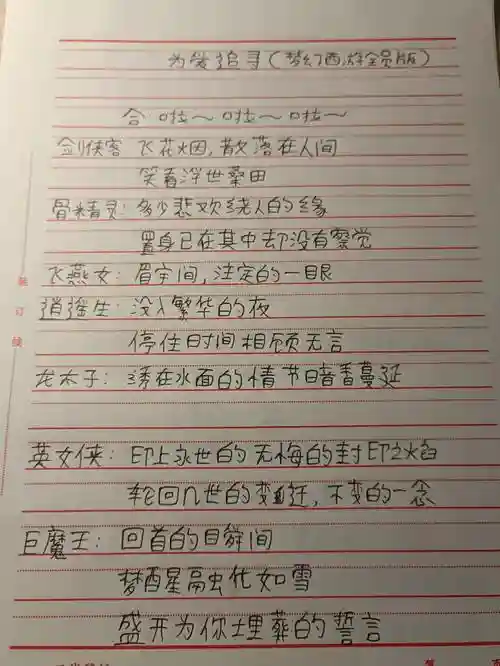 为爱追寻(梦幻西游全员版)
合 啦～啦～啦～
剑侠客 飞花烟,散落在人间
笑看浮世桑田
骨精灵:多少悲欢绕人的缘
置身已在其中却没有察觉
飞燕女:眉宇间,注定的一眼
逍遥生:没入繁华的夜
停住时间相顾无言
龙太子:绣在水面的情节暗香蔓延
英女侠:印上永世的无悔的封印之火焰
轮回几世的变迁,不变的一念
巨魔王:回首的目瞬间
梦醒星融化如雪
盛开为你埋葬的誓言
装
订
线